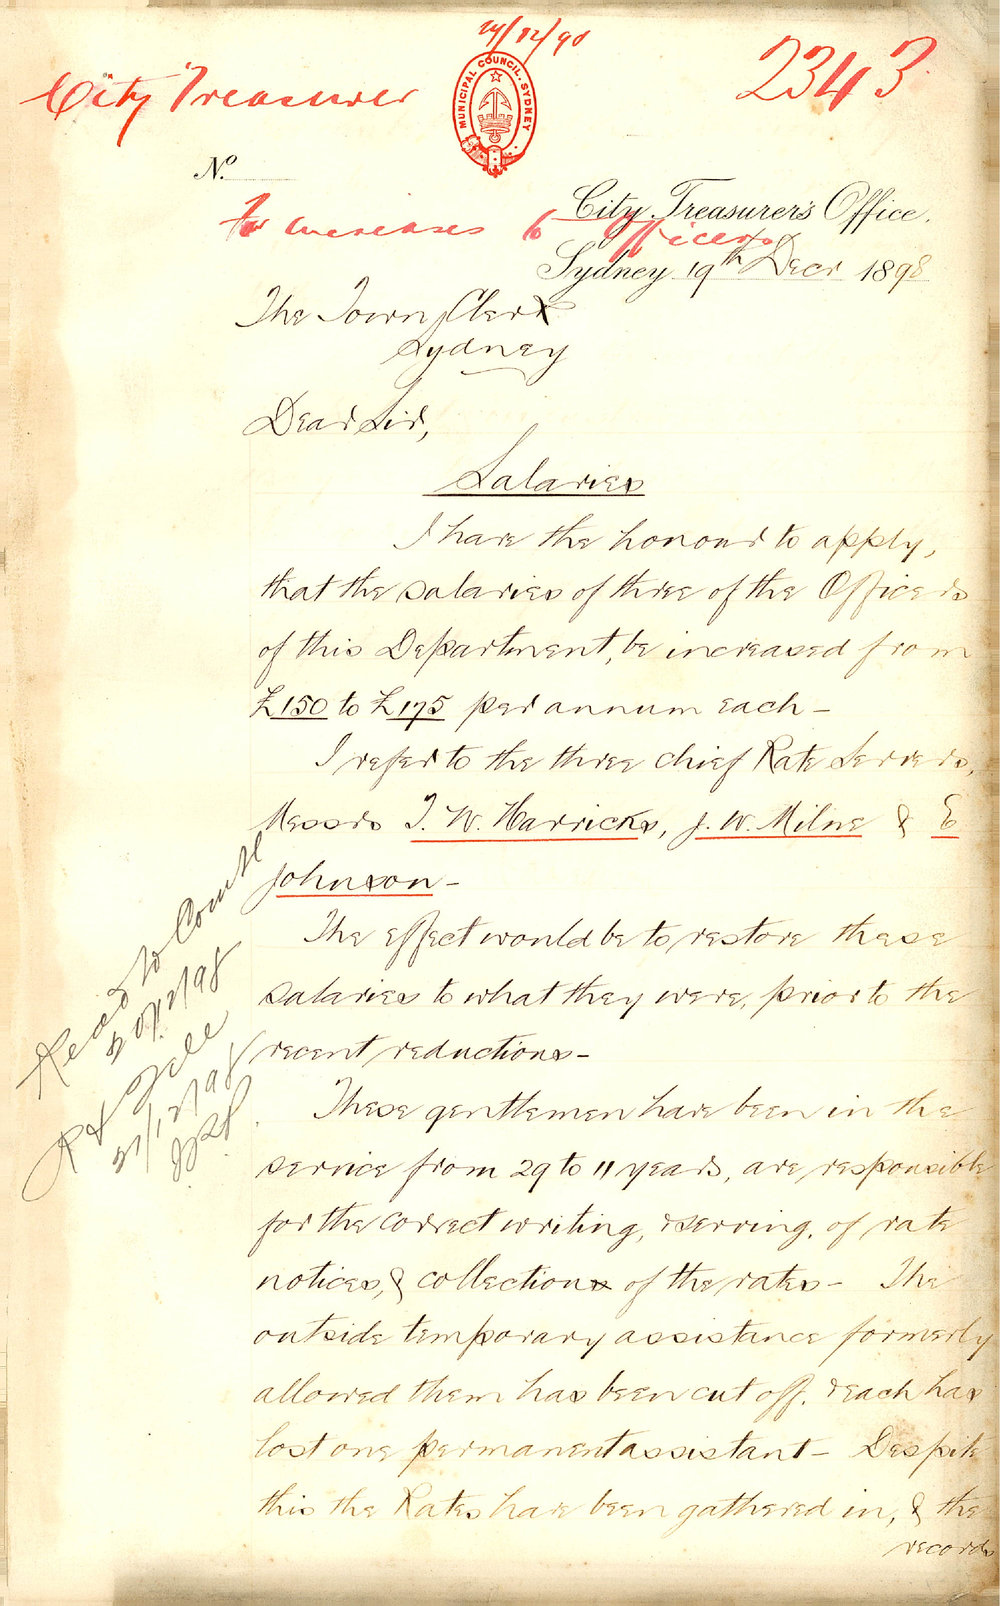 24/12/98
City Treasurer
2343
MUNICIPAL COUNCIL. SYDNEY
No.
City Treasurer's Office.
For increases to Officers
Sydney 19th Decr 1898
The Town Clerk
Sydney
Dear Sir,
Salaries
I have the honour to apply,
that the salaries of three of the Officers
of this Department, be increased from
£150 to £175 per annum each -
I refer to the three chief Rate Servers,
Messrs T. W. Harricks, J. W. Milne & E
Johnson -
The effect would be to restore these
salaries to what they were, prior to the
recent reductions -
These gentlemen have been in the
service from 29 to 11 years, are responsible
for the correct writing, & serving, of rate
notices, & collection of the rates - The
outside temporary assistance formerly
allowed them has been cut off, & each has
lost one permanent assistant - Despite
this the Rates have been gathered in, & the
records
Read to Comtee
20/12/98
21/12/98